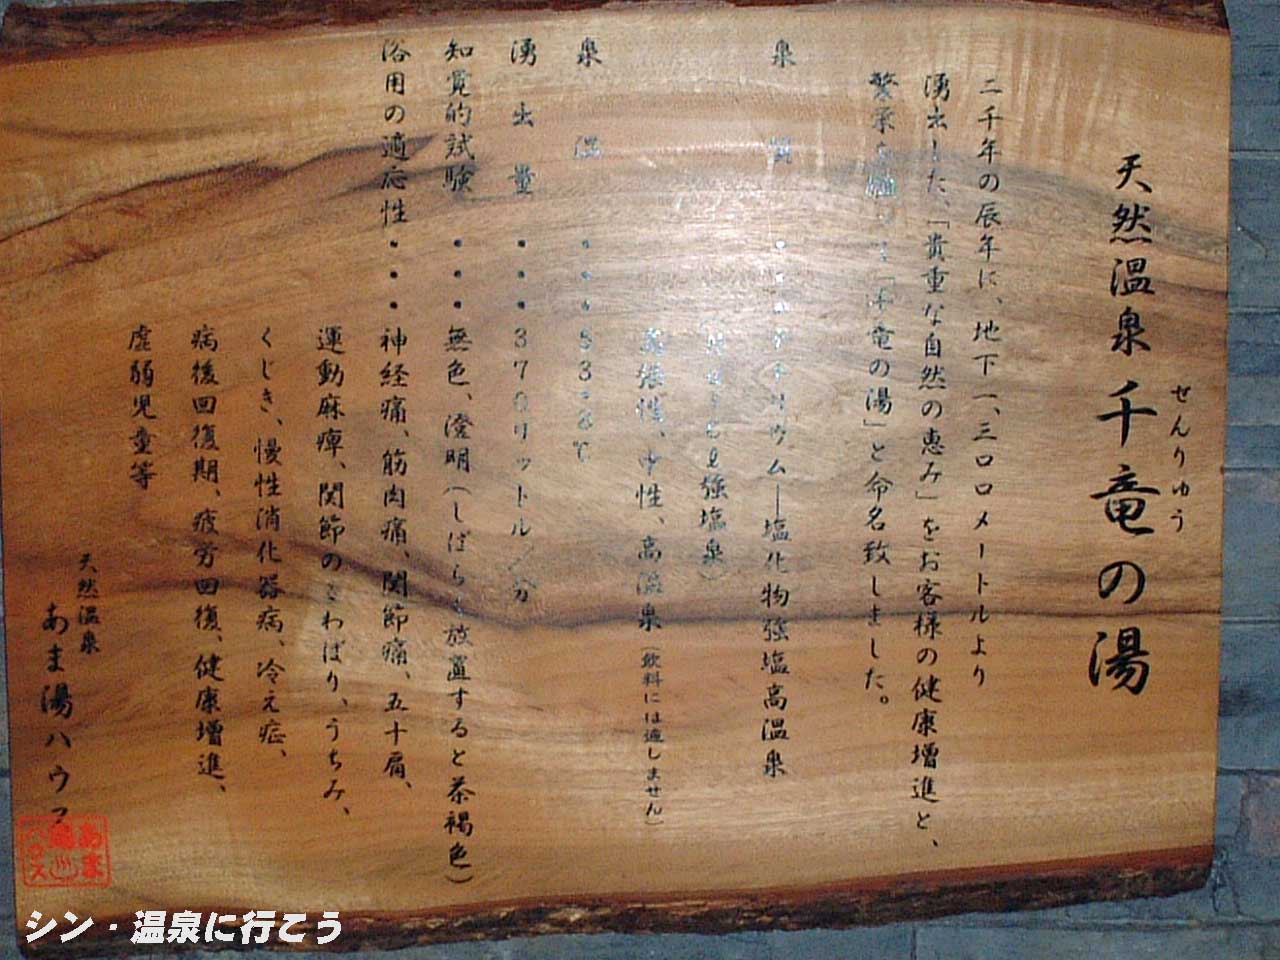 天然温泉 千竜の湯
せんりゅう
二千年の辰年に、地下一、三〇〇メートルより
湧出した、「貴重な自然の恵み」をお客様の健康増進と、
繁栄を
「千竜の湯」と命名致しました。
泉 質・・・ナトリウム―塩化物強塩高温泉
強塩泉)
高張性、中性、高温泉(飲料には適しません)
泉 温・・・53.8℃
湧 出 量・・・370リットル/分
知覚的試験・・・無色、澄明(しばらく放置すると茶褐色)
浴用の適応性・・・神経痛、筋肉痛、関節痛、五十肩、
運動麻痺、関節のこわばり、うちみ、
くじき、慢性消化器病、冷え症、
病後回復期、疲労回復、健康増進、
虚弱児童等
天然温泉
あま湯ハウス
あま湯ハウス
シン・温泉に行こう